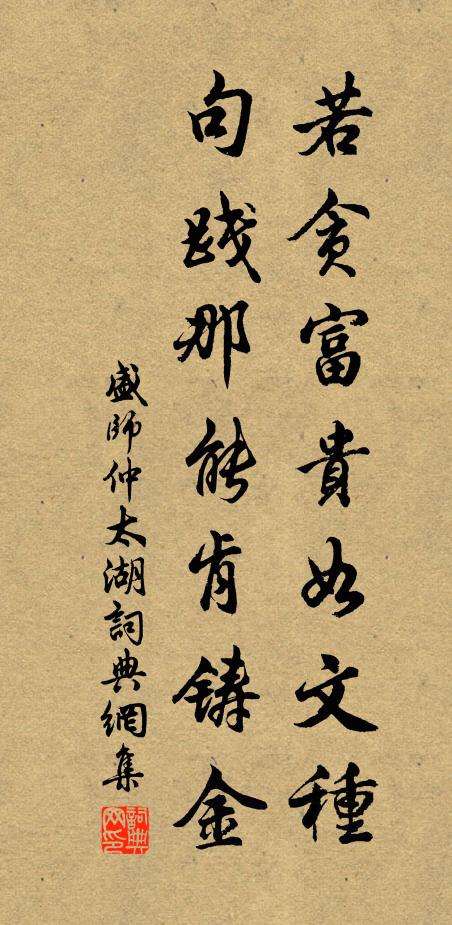 若貪富貴如文種
句踐那能肯鑄金
盛師仲太湖詞典網集
詞典網印